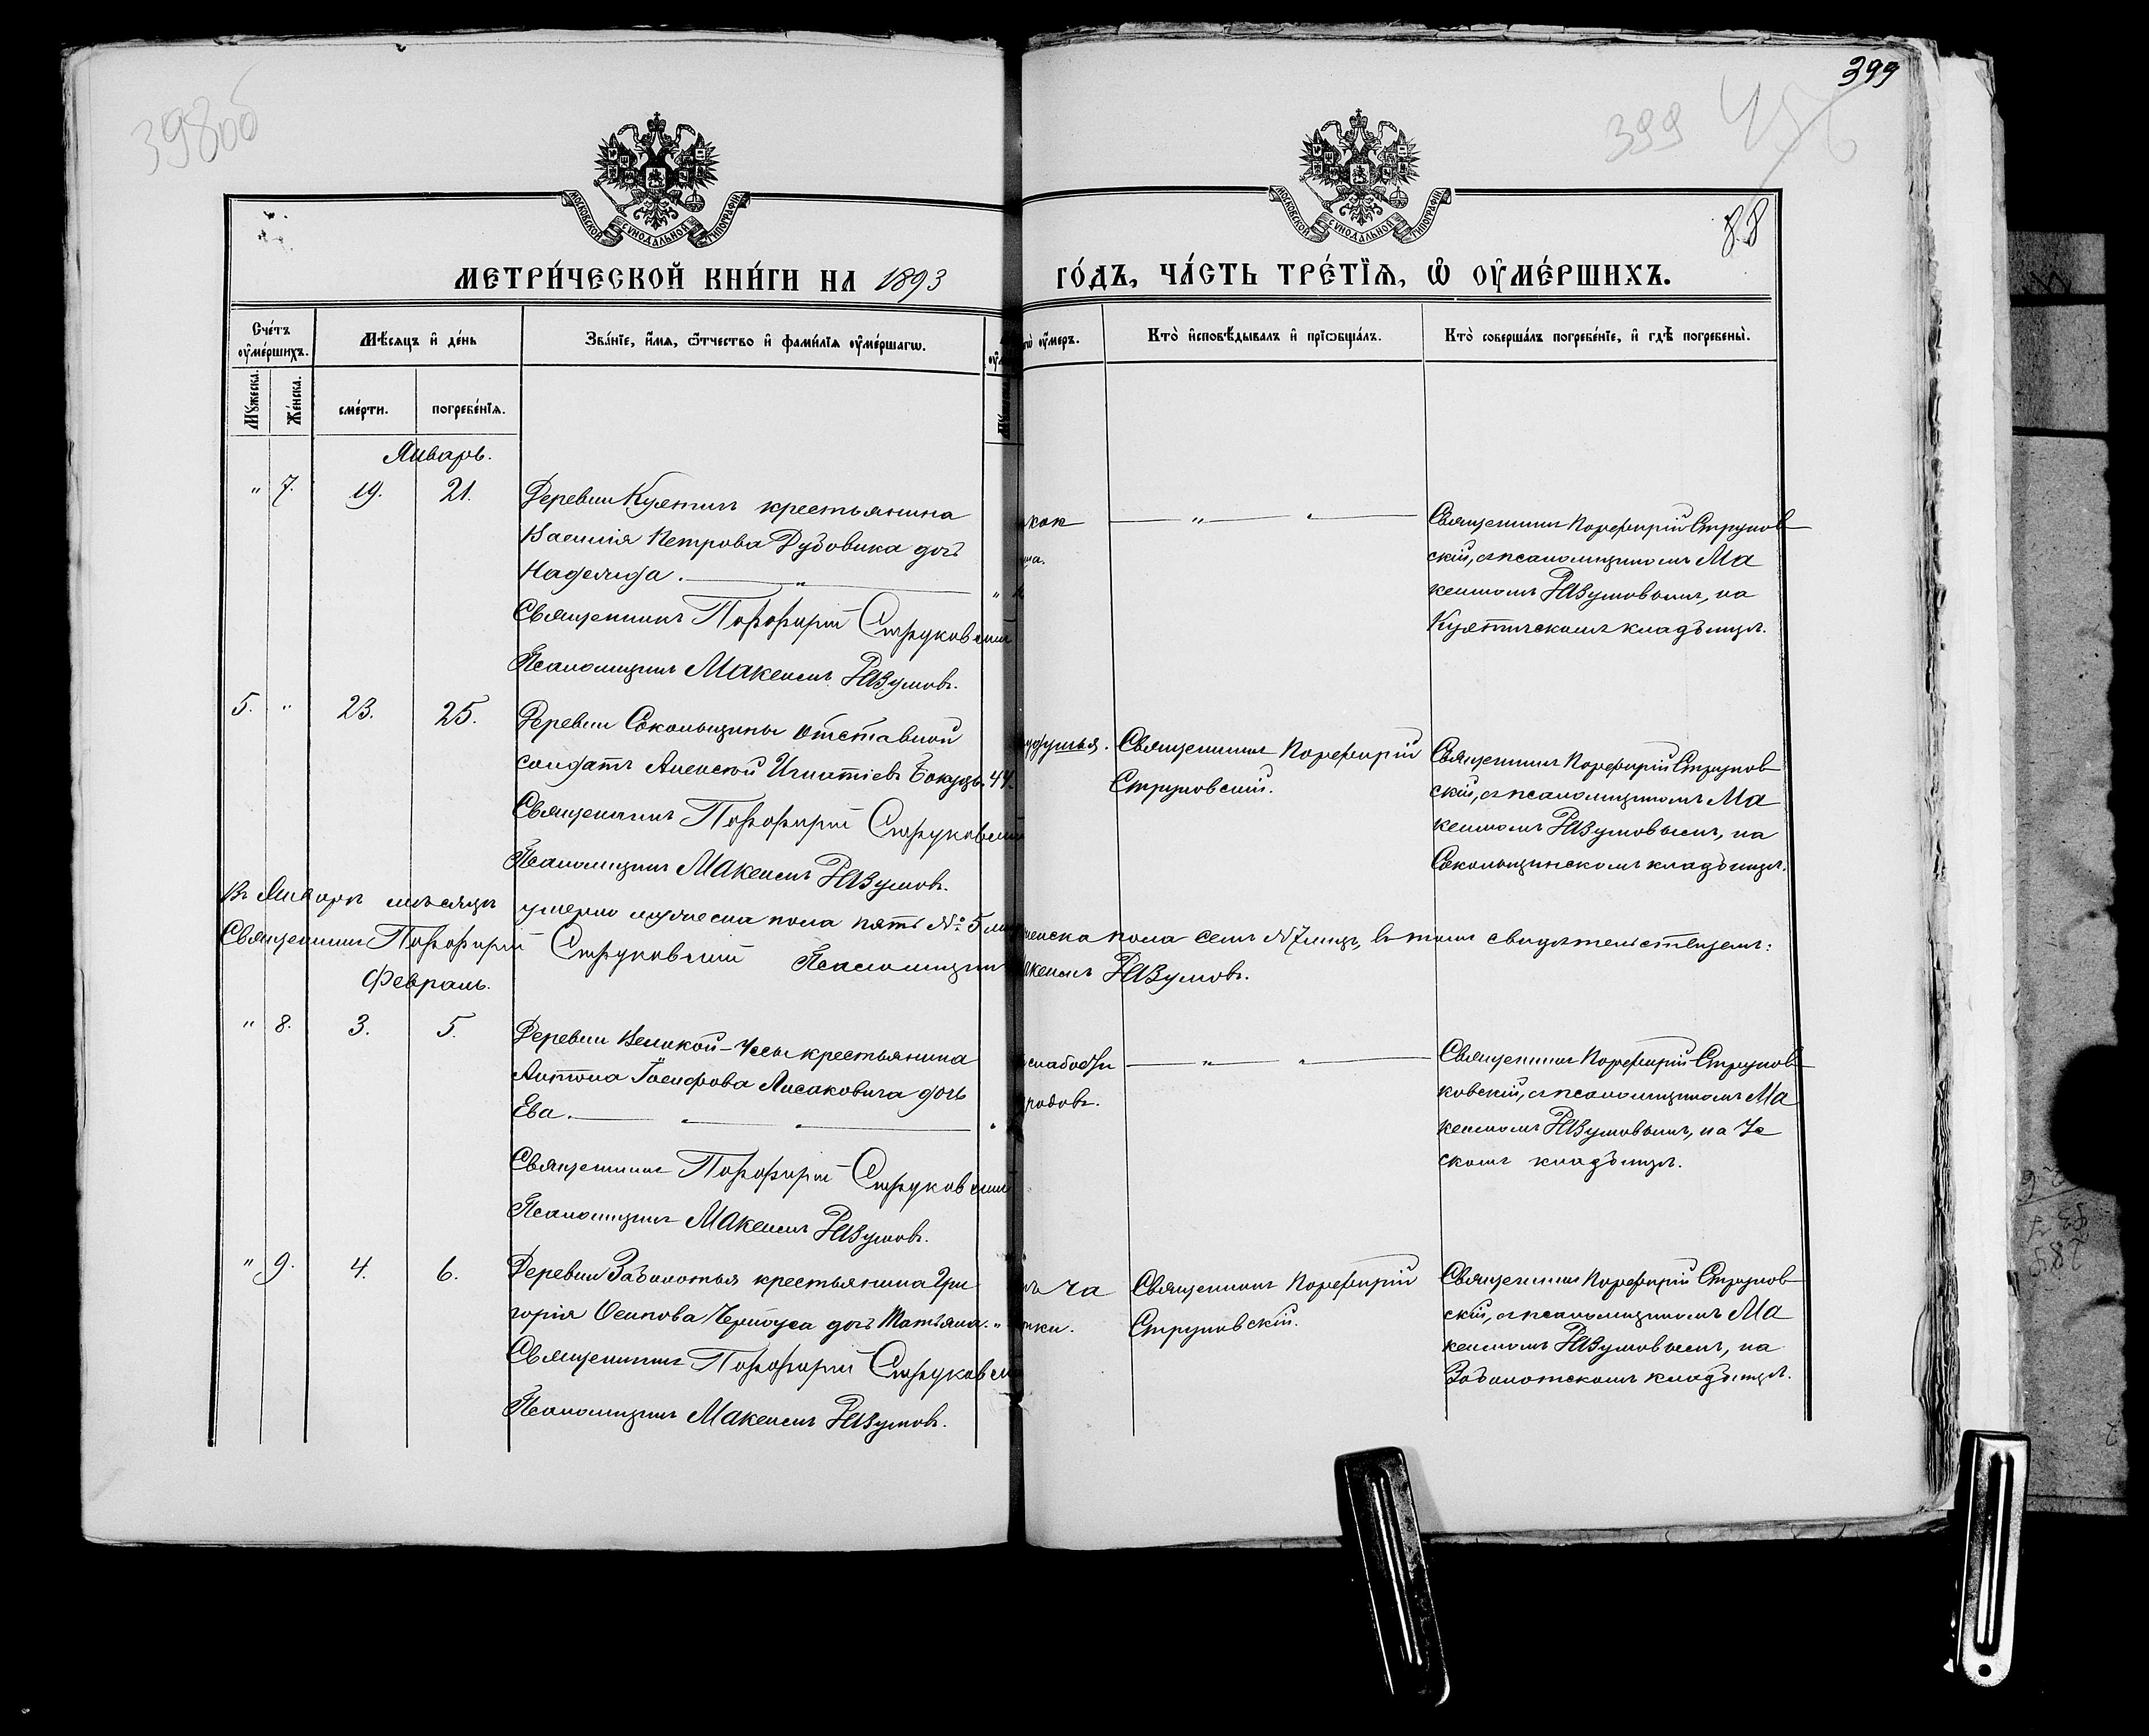 398об
399
399
88
МОСКОВСКОЙ СУНОДАЛЬНОЙ ТИПОГРАФІИ
МОСКОВСКОЙ СУНОДАЛЬНОЙ ТИПОГРАФІИ
МЕТРИ́ЧЕСКОЙ КНИ́ГИ НА 1893
ГО́ДЪ, ЧА́СТЬ ТРЕ́ТЇѦ, Ѡ ОУ҆МЕ́РШИХЪ.
Сче́тъ оу҆ме́ршихъ.
Мѣ́сяцъ и҆ де́нь
Зва́нїе, и҆́мѧ, ѻ҆́тчество и҆ фами́лїѧ оу҆ме́ршагѡ.
гѡ̀ оу҆́меръ.
Кто̀ и҆сповѣ́дывалъ и҆ прїѡбща́лъ.
Кто̀ соверша́лъ погребе́нїе, и҆ гдѣ̀ погребены̀.
Мꙋ́жеска.
Же́нска.
сме́рти.
погребе́нїѧ.
Январь.
" 7. 19. 21.
Деревни Куятичъ крестьянина
Василія Петрова Дубовика дочь
Надежда. "
Священникъ Порфирій Струковскій
Псаломщикъ Максимъ Наумовъ.
Священникъ Порфирій Струков
скій, съ псаломщикомъ Ма
ксимомъ Наумовымъ, на
Куятичскомъ кладбищѣ.
5. " 23. 25.
Деревни Сокольщины отставной
солдатъ Алексѣй Игнатіевъ 44.
Священникъ Порфирій Струковскій
Псаломщикъ Максимъ Наумовъ.
Священникъ Порфирій
Струковскій.
Священникъ Порфирій Струков
скій, съ псаломщикомъ Ма
ксимомъ Наумовымъ, на
Сокольщинскомъ кладбищѣ.
Въ Январѣ мѣсяцѣ умерло мужеска пола пять № 5 женска пола семь № 7 лицъ, въ томъ свидѣтельствуемъ:
Священникъ Порфирій Струковскій Псаломщикъ Максимъ Наумовъ.
Февраль.
" 8. 3. 5.
Деревни Великой-Чсы крестьянина
Антона Іосифова Лисаковича дочь
Ева. " "
Священникъ Порфирій Струковскій
Псаломщикъ Максимъ Наумовъ.
слабости
родовъ.
Священникъ Порфирій Струков
ковскій, съ псаломщикомъ Ма
ксимомъ Наумовымъ, на Чс
скомъ кладбищѣ.
" 9. 4. 6.
Деревни Заболотья крестьянина Гри
горія Осипова Черноуса дочь Татьяна. "
Священникъ Порфирій Струковскій
Псаломщикъ Максимъ Наумовъ.
ъ ча
тки.
Священникъ Порфирій
Струковскій.
Священникъ Порфирій Струков
скій, съ псаломщикомъ Ма
ксимомъ Наумовымъ, на
Заболотскомъ кладбищѣ.